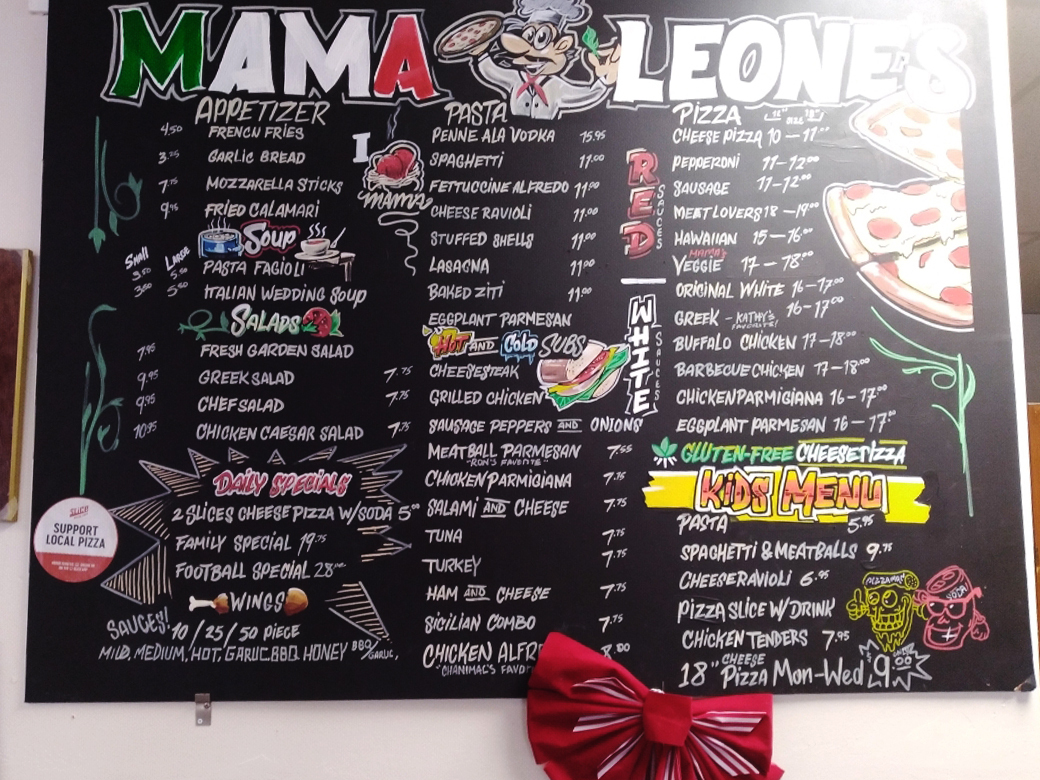 MAMA LEONE'S
APPETIZER
4.50 FRENCH FRIES
3.25 GARLIC BREAD
7.75 MOZZARELLA STICKS
9.95 FRIED CALAMARI
I
MAMA'S
Soup
Small Large
3.50 5.50 PASTA FAGIOLI
3.50 5.50 ITALIAN WEDDING SOUP
SALADS
7.95 FRESH GARDEN SALAD
9.95 GREEK SALAD
9.95 CHEF SALAD
10.95 CHICKEN CAESAR SALAD
DAILY SPECIALS
2 SLICES CHEESE PIZZA W/SODA 5.00
FAMILY SPECIAL 19.75
FOOTBALL SPECIAL 28
WINGS
SAUCES! 10 / 25 / 50 PIECE
MILD, MEDIUM, HOT, GARLIC BBQ HONEY BBQ/GARLIC,
SLICE
SUPPORT
LOCAL PIZZA
PASTA
PENNE ALA VODKA 15.95
SPAGHETTI 11.00
FETTUCCINE ALFREDO 11.00
CHEESE RAVIOLI 11.00
STUFFED SHELLS 11.00
LASAGNA 11.00
BAKED ZITI 11.00
EGGPLANT PARMESAN
HOT AND COLD SUBS
7.75 CHEESESTEAK
7.75 GRILLED CHICKEN
7.75 SAUSAGE PEPPERS AND ONIONS
MEATBALL PARMESAN 7.55
"RON'S FAVORITE"
CHICKEN PARMIGIANA 7.75
SALAMI AND CHEESE 7.75
TUNA 7.75
TURKEY 7.75
HAM AND CHEESE 7.75
SICILIAN COMBO 7.75
CHICKEN ALFR 8.00
RED SAUCES
WHITE SAUCES
PIZZA
CHEESE PIZZA 10 - 11
PEPPERONI 11 - 12.00
SAUSAGE 11 - 12.00
MEAT LOVERS 18 - 19.00
HAWAIIAN 15 - 16.00
MAMA'S
VEGGIE 17 - 18.00
ORIGINAL WHITE 16 - 17.00
GREEK - KATHY'S FAVORITE! 16 - 17.00
BUFFALO CHICKEN 17 - 18.00
BARBECUE CHICKEN 17 - 18.00
CHICKEN PARMIGIANA 16 - 17.00
EGGPLANT PARMESAN 16 - 17.00
GLUTEN-FREE CHEESE PIZZA
KiDS MENU
PASTA 5.95
SPAGHETTI & MEATBALLS 9.75
CHEESE RAVIOLI 6.95
PIZZA SLICE W/DRINK
CHICKEN TENDERS 7.95
18" CHEESE PIZZA Mon-Wed 9
SODA